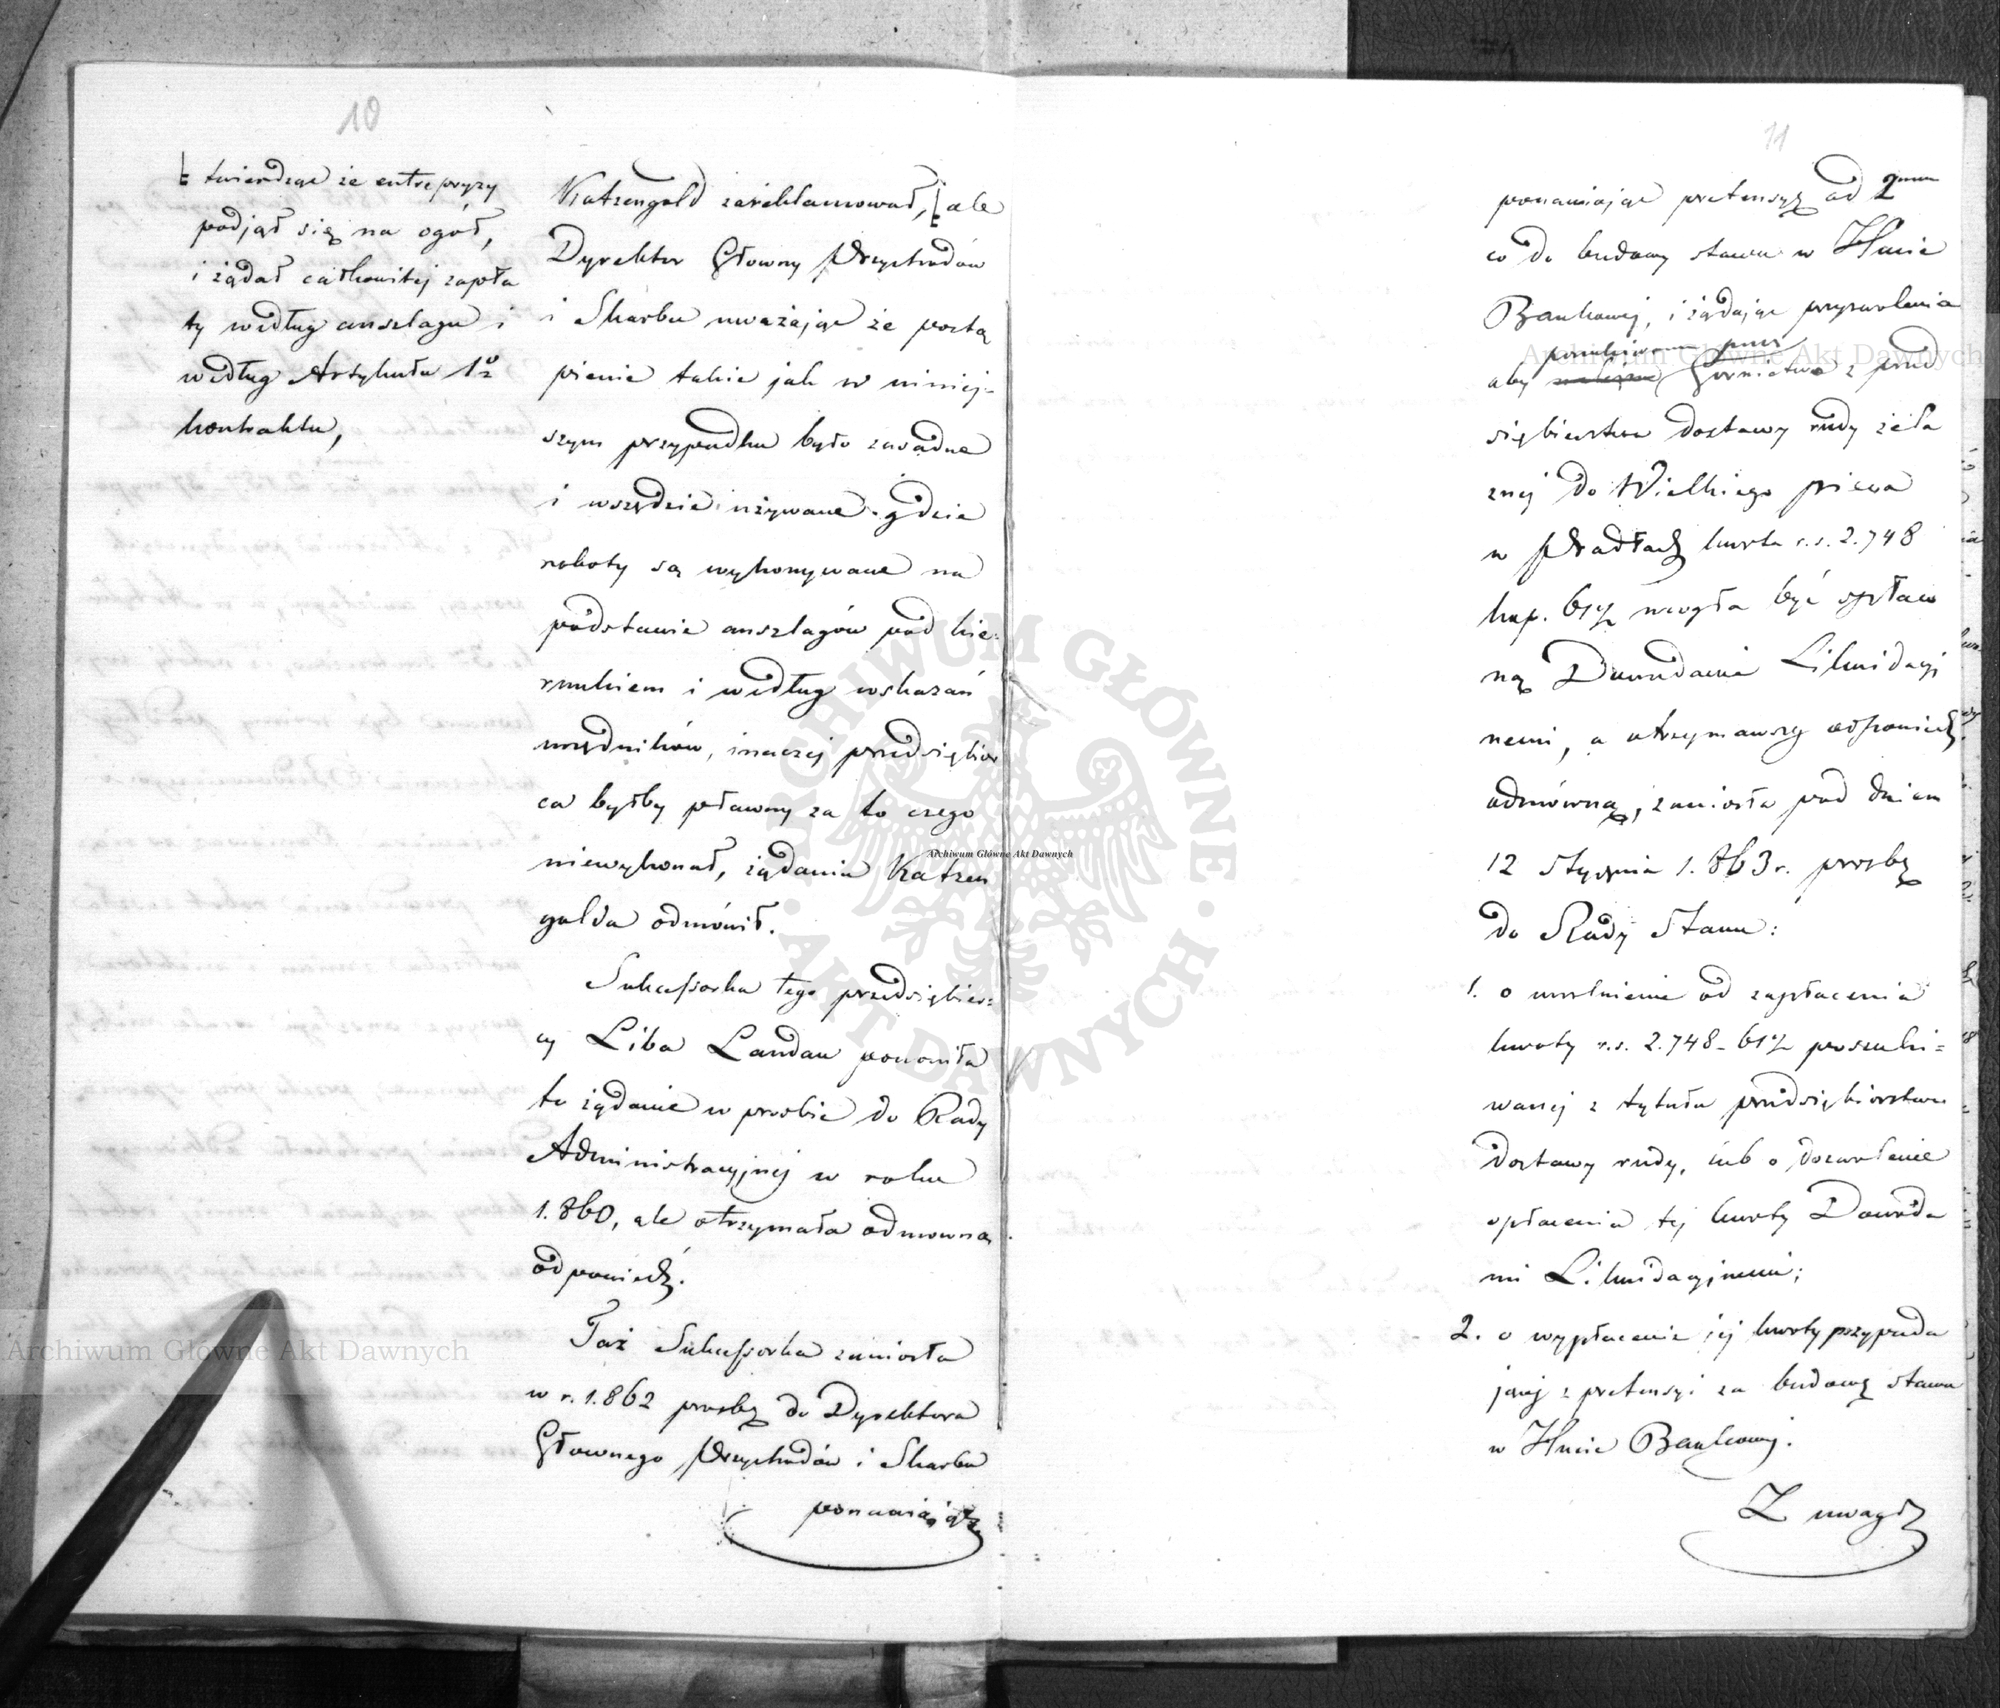 10
twierdząc że entrepryzy
podjął się na ogół,
i żądał całkowitej zapła
ty według anszlagu i
według Artykułu 1º
kontraktu,
Katzengold zareklamował, ale
Dyrektor Głowny Przychodów
i Skarbu uważając że postą
pienie takie jak w niniej-
szym przypadku było zasadne
i wszędzie używane gdzie
roboty są wykonywane na
podstawie anszlagów pod kie-
runkiem i według wskazań
urzędników, inaczej przedsiębior
ca byłby płacony za to czego
niewykonał, żądania Katzen
golda odmówił.
Sukcessorka tego przedsiębier-
cy Liba Landau ponowiła
to żądanie w prosbie do Rady
Administracyjnej w roku
1.860, ale otrzymała odmowną
odpowiedź.
Taż Sukcessorka zaniosła
w r. 1.862 prosbę do Dyrektora
Głownego Przychodów i Skarbu
ponawiając
11
ponawiając pretensyę ad 2
co do budowy stawu w Hucie
Bankowej, i żądając przyzwolenia
poszukiwana przez
aby Gornictwo z przed
siębierstwa dostawy rudy żela
znej do Wielkiego pieca
w Pradłach kwota r.s. 2.748
kop. 61½ mogła być spłaco
ną Dowodami Likwidacyj
nemi, a otrzymawszy odpowiedź
odmówną, zaniosła pod dniem
12 Stycznia 1.863 r. prosbę
do Rady Stanu:
1. o uwolnienie od zapłacenia
kwoty r.s. 2.748-61½ poszuki-
wanej z tytułu przedsiębiorstwa
dostawy rudy, lub o dozwolenie
opłacenia tej kwoty Dowoda
mi Likwidacyjnemi;
2. o wypłacenie jej kwoty przypada
jącej z pretensyi za budowę stawu
w Hucie Bankowej.
Z uwagi
Archiwum Główne Akt Dawnych
Archiwum Główne Akt Dawnych
Archiwum Główne Akt Dawnych
ARCHIWUM GŁÓWNE · AKT DAWNYCH ·